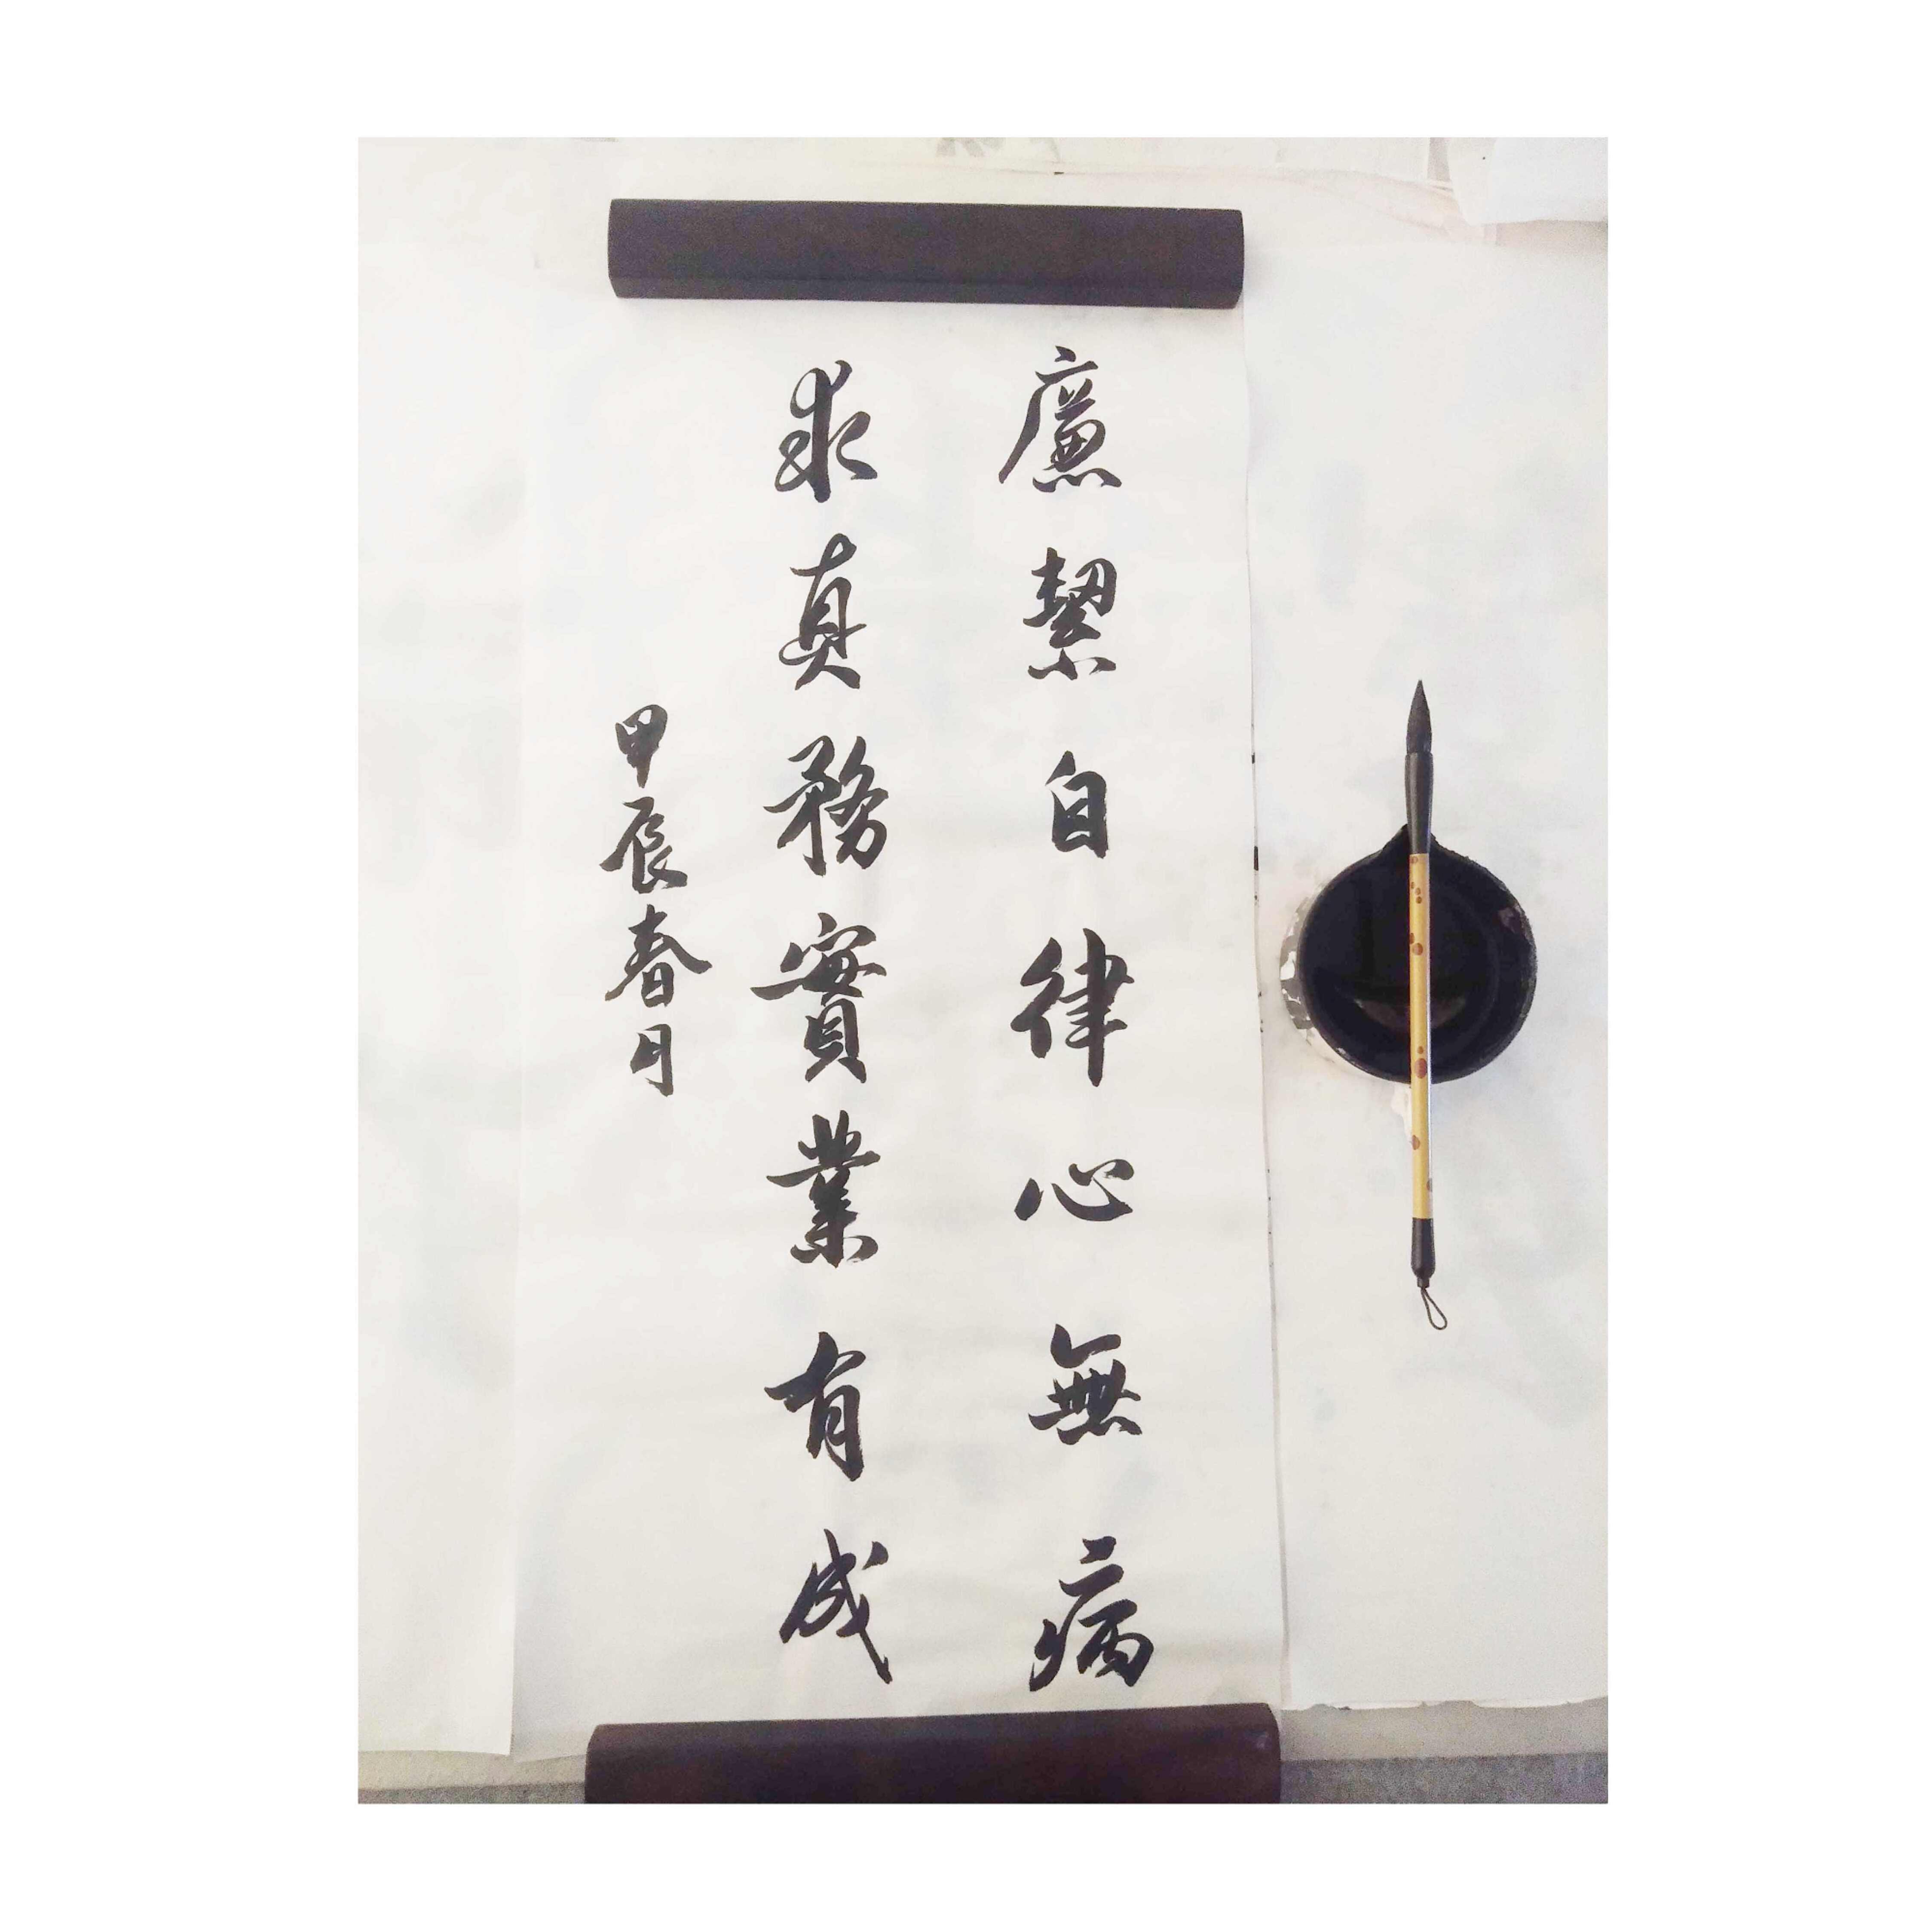 廉絜自律心無病
求真務實業有成
甲辰春月